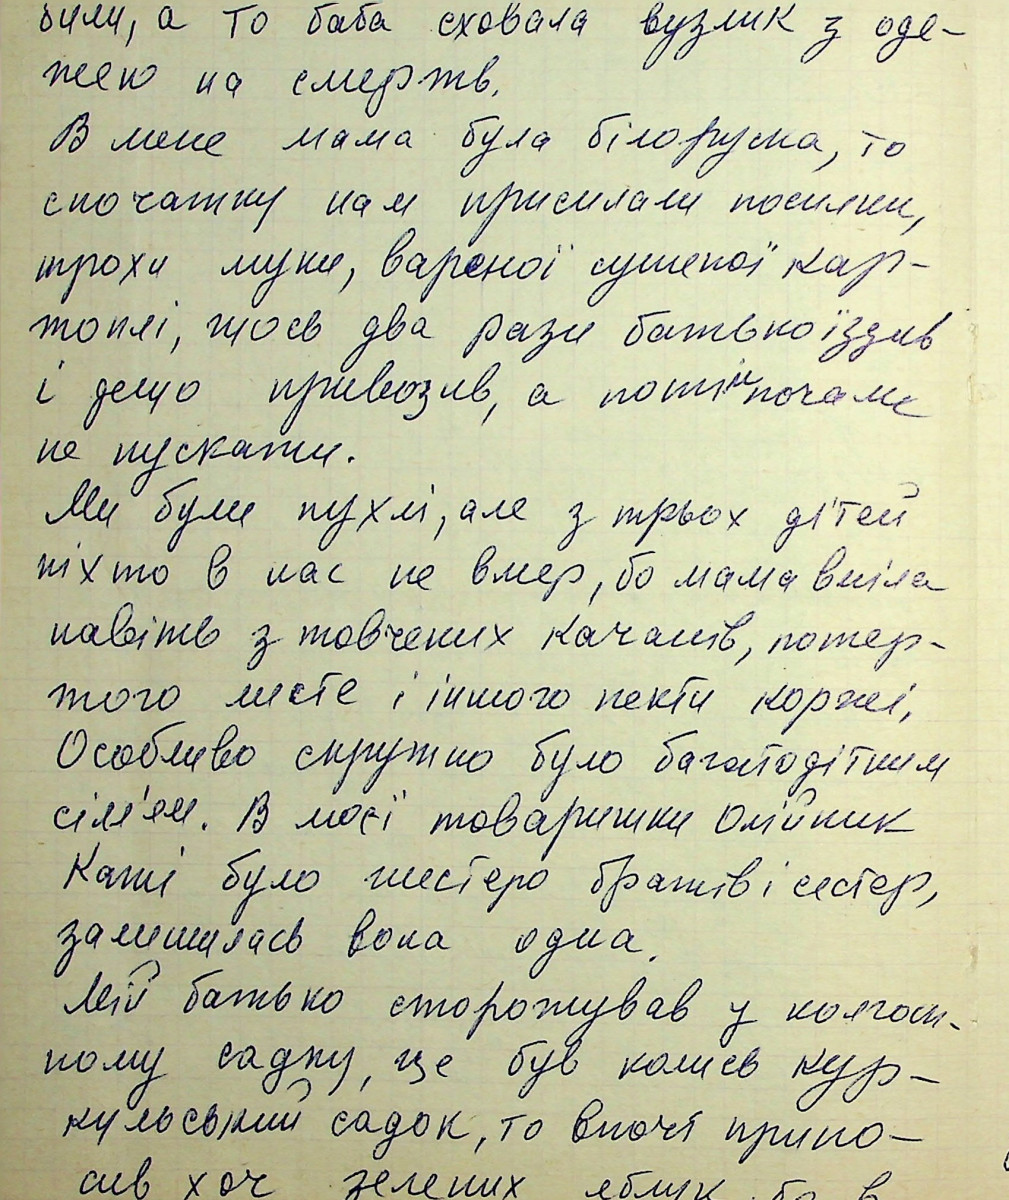 били, а то баба сховала вузлик з оде-
жею на смерть.
В мене мама була білоруска, то
спочатку нам присилали посилки,
трохи муки, вареної сушеної кар-
топлі, щось два рази батько їздив
і дещо привозив, а потім почали
не пускати.
Ми були пухлі, але з трьох дітей
ніхто в нас не вмер, бо мама вміла
навіть з товчених качанів, потер-
того листе і іншого пекти коржі.
Особливо скрутно було багатодітним
сім'ям. В моєї товаришки Олійник
Каті було шестеро братів і сестер,
залишилась вона одна.
Мій батько сторожував у колгосп-
ному садку, це був колись кур-
кульський садок, то вночі прино-
сив хоч зелених яблук, бо в